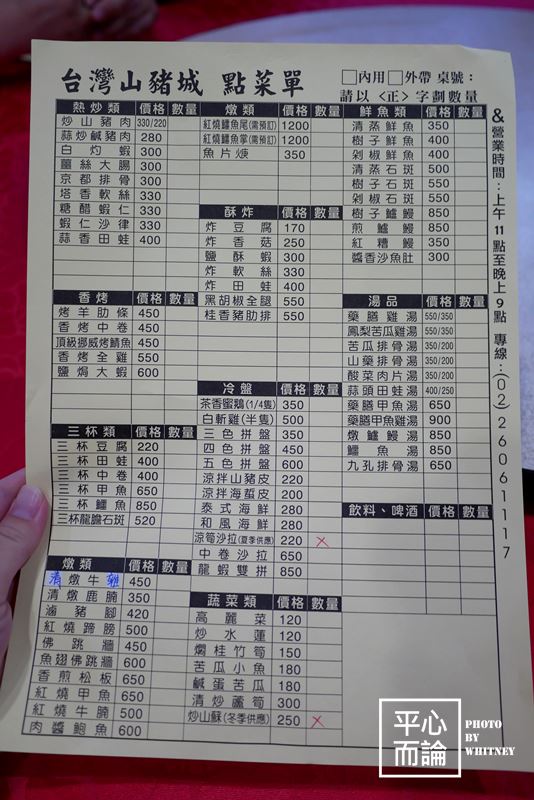 台灣山豬城 點菜單
□內用□外帶 桌號：
請以〈正〉字劃數量
熱炒類 價格 數量
炒山豬肉 330/220
蒜炒鹹豬肉 280
白灼蝦 300
薑絲大腸 300
京都排骨 300
塔香軟絲 330
糖醋蝦仁 330
蝦仁沙律 330
蒜香田蛙 400
香烤 價格 數量
烤羊肋條 450
香烤中卷 450
頂級挪威烤鯖魚 450
香烤全雞 550
鹽焗大蝦 600
三杯類 價格 數量
三杯豆腐 220
三杯田蛙 400
三杯中卷 400
三杯甲魚 650
三杯鱷魚 850
三杯龍膽石斑 520
燉類 價格 數量
清燉牛雜 450
清燉鹿腩 350
滷豬腳 420
紅燒蹄膀 500
佛跳牆 450
魚翅佛跳牆 600
香煎松板 650
紅燒甲魚 650
紅燒牛腩 500
肉醬鮑魚 600
燉類 價格 數量
紅燒鱷魚尾(需預訂) 1200
紅燒鱷魚掌(需預訂) 1200
魚片焿 350
酥炸 價格 數量
炸豆腐 170
炸香菇 250
鹽酥蝦 300
炸軟絲 330
炸田蛙 400
黑胡椒全腿 550
桂香豬肋排 550
冷盤 價格 數量
茶香蜜鷄(1/4隻) 350
白斬雞(半隻) 500
三色拼盤 350
四色拼盤 450
五色拼盤 600
涼拌山豬皮 220
涼拌海蜇皮 200
泰式海鮮 280
和風海鮮 280
涼筍沙拉(夏季供應) 220 ×
中卷沙拉 650
龍蝦雙拼 850
蔬菜類 價格 數量
高麗菜 120
炒水蓮 120
燜桂竹筍 150
苦瓜小魚 180
鹹蛋苦瓜 180
清炒蘆筍 300
炒山蘇(冬季供應) 250 ×
鮮魚類 價格 數量
清蒸鮮魚 350
樹子鮮魚 400
剁椒鮮魚 400
清蒸石斑 500
樹子石斑 550
剁椒石斑 550
樹子鱸鰻 850
煎鱸鰻 850
紅糟鰻 350
醬香沙魚肚 300
湯品 價格 數量
藥膳雞湯 550/350
鳳梨苦瓜雞湯 550/350
苦瓜排骨湯 350/200
山藥排骨湯 350/200
酸菜肉片湯 350/200
蒜頭田蛙湯 400/250
藥膳甲魚湯 650
藥膳甲魚雞湯 900
燉鱸鰻湯 850
鱷魚湯 850
九孔排骨湯 650
飲料、啤酒 價格 數量
&營業時間：上午11點至晚上9點 專線：(02)26061117
平心而論
PHOTO
BY
WHITNEY